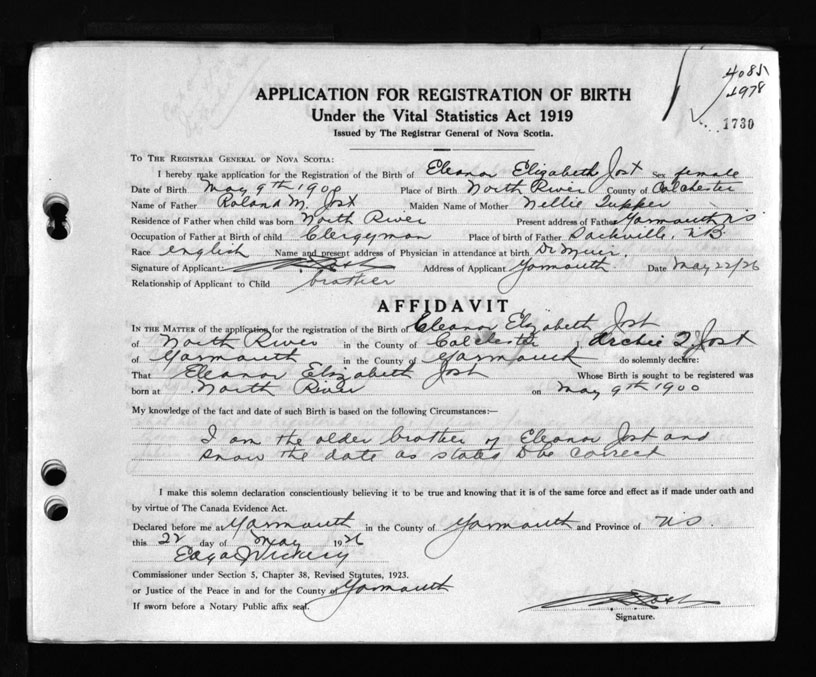 4085
1978
1730
APPLICATION FOR REGISTRATION OF BIRTH
Under the Vital Statistics Act 1919
Issued by The Registrar General of Nova Scotia.
TO THE REGISTRAR GENERAL OF NOVA SCOTIA:
I hereby make application for the Registration of the Birth of Eleanor Elizabeth Jost Sex female
Date of Birth May 9th 1900 Place of Birth North River County of Colchester
Name of Father Roland M. Jost Maiden Name of Mother Nellie Tupper
Residence of Father when child was born North River Present address of Father Yarmouth NS
Occupation of Father at Birth of child Clergyman Place of birth of Father Sackville, N.B.
Race english Name and present address of Physician in attendance at birth Dr Muir.
Signature of Applicant: Jost Address of Applicant Yarmouth Date May 22/26
Relationship of Applicant to Child brother
AFFIDAVIT
IN THE MATTER of the application for the registration of the Birth of Eleanor Elizabeth Jost
of North River in the County of Colchester, Archie Jost
of Yarmouth in the County of Yarmouth do solemnly declare:
That Eleanor Elizabeth Jost Whose Birth is sought to be registered was
born at North River on May 9th 1900
My knowledge of the fact and date of such Birth is based on the following Circumstances:—
I am the older brother of Eleanor Jost and
know the date as stated to be correct
I make this solemn declaration conscientiously believing it to be true and knowing that it is of the same force and effect as if made under oath and
by virtue of The Canada Evidence Act.
Declared before me at Yarmouth in the County of Yarmouth and Province of NS.
this 22 day of May 1926
Edgar J Vickery
Commissioner under Section 5, Chapter 38, Revised Statutes, 1923.
or Justice of the Peace in and for the County of Yarmouth
If sworn before a Notary Public affix seal.
Jost
Signature.